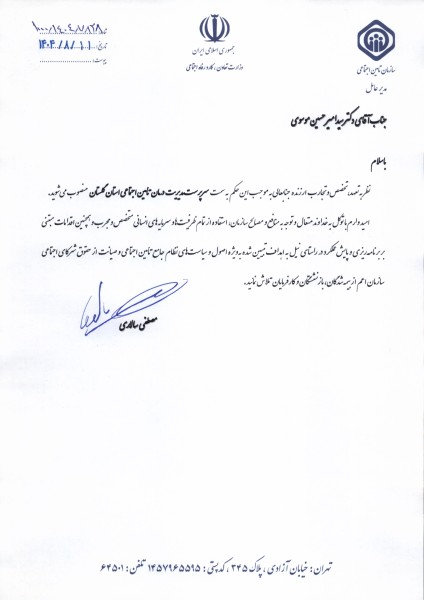 جمهوری اسلامی ایران
وزارت تعاون، کار و رفاه اجتماعی
سازمان تامین اجتماعی
مدیرعامل
۱۰۰۰/۱۴۰۴/۷۸۲۸
تاریخ: ۱۴۰۴/۸/۱۱
پیوست:
جناب آقای دکتر سید امیر حسین موسوی
با سلام
نظر به تعهد، تخصص و تجارب ارزنده جنابعالی به موجب این حکم به سمت سرپرست مدیریت درمان تامین اجتماعی استان گلستان منصوب می شوید.
امید دارم با توکل به خداوند متعال و توجه به منافع و مصالح سازمان، استفاده از تمام ظرفیت ها و سرمایه های انسانی متخصص و مجرب و همچنین اقدامات مبتنی
بر برنامه ریزی و پایش عملکرد در راستای نیل به اهداف تبیین شده به ویژه اصول و سیاست های نظام جامع تامین اجتماعی و صیانت از حقوق شرکای اجتماعی
سازمان اعم از بیمه شدگان، بازنشستگان و کارفرمایان تلاش نمائید.
مصطفی سالاری
تهران: خیابان آزادی، پلاک ۳۴۵، کد پستی: ۱۴۵۷۹۶۵۵۹۵ تلفن: ۶۴۵۰۱